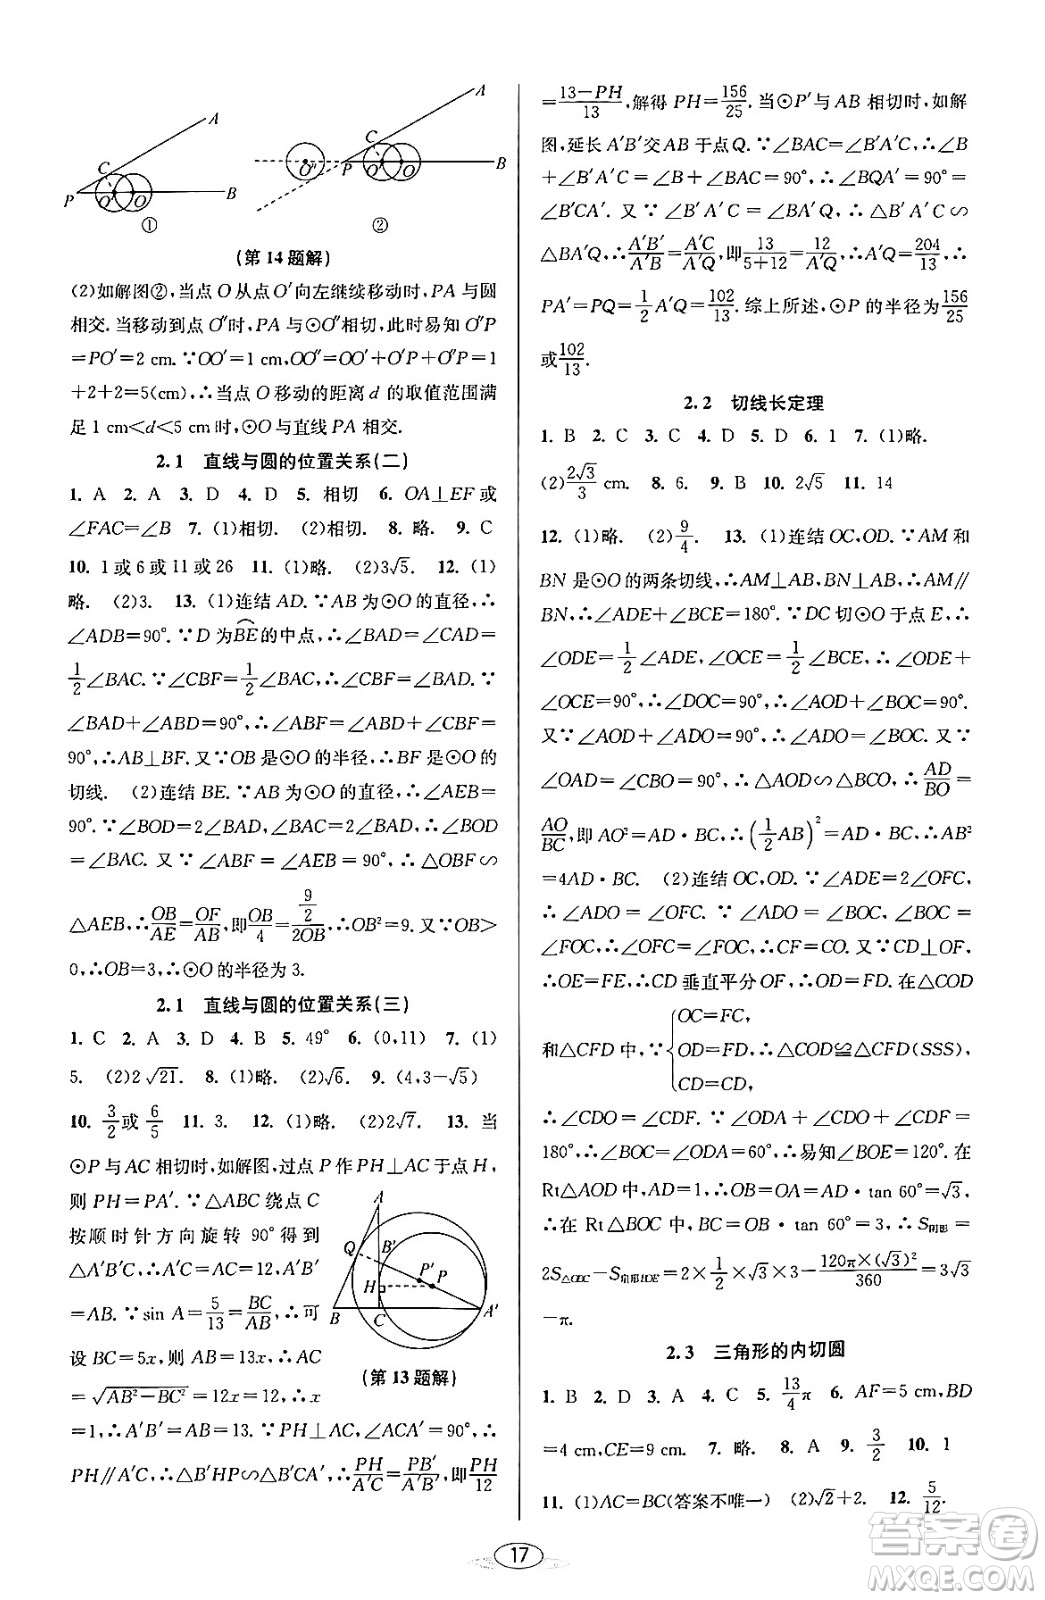 A
C
P
O′
O
B
①
A
C
O″
P
O′
O
B
②
(第14题解)
(2)如解图②,当点O从点O′向左继续移动时,PA与圆
相交.当移动到点O″时,PA与⊙O″相切,此时易知O″P
=PO′=2 cm.∵OO′=1 cm,OO″=OO′+O′P+O″P=1
+2+2=5(cm),∴当点O移动的距离d的取值范围满
足1 cm<d<5 cm时,⊙O与直线PA相交.
2.1 直线与圆的位置关系(二)
1. A 2. A 3. D 4. D 5. 相切 6. OA⊥EF或
∠FAC=∠B 7. (1)相切. (2)相切. 8. 略. 9. C
10. 1或6或11或26 11. (1)略. (2)3√5. 12. (1)
略. (2)3. 13. (1)连结AD.∵AB为⊙O的直径,∴
∠ADB=90°.∵D为BE⌒的中点,∴∠BAD=∠CAD=
1/2∠BAC.∵∠CBF=1/2∠BAC,∴∠CBF=∠BAD.∵
∠BAD+∠ABD=90°,∴∠ABF=∠ABD+∠CBF=
90°.∴AB⊥BF.又∵OB是⊙O的半径,∴BF是⊙O的
切线. (2)连结BE.∵AB为⊙O的直径,∴∠AEB=
90°.∵∠BOD=2∠BAD,∠BAC=2∠BAD,∴∠BOD
=∠BAC.又∵∠ABF=∠AEB=90°,∴△OBF∽
△AEB,∴OB/AE=OF/AB,即OB/4=(9/2)/2OB,∴OB²=9.又∵OB>
0,∴OB=3,∴⊙O的半径为3.
2.1 直线与圆的位置关系(三)
1. C 2. A 3. D 4. B 5. 49° 6. (0,11) 7. (1)
5. (2)2√21. 8. (1)略. (2)√6. 9. (4,3-√5)
10. 3/2或6/5 11. 3. 12. (1)略. (2)2√7. 13. 当
⊙P与AC相切时,如解图,过点P作PH⊥AC于点H,
则PH=PA′.∵△ABC绕点C
按顺时针方向旋转90°得到
△A′B′C,∴A′C=AC=12,A′B′
=AB.∵sin A=5/13=BC/AB,∴可
设BC=5x,则AB=13x,∴AC
=√(AB²-BC²)=12x=12,∴x
=1,∴A′B′=AB=13.∵PH⊥AC,∠ACA′=90°,∴
PH∥A′C,∴△B′HP∽△B′CA′,∴PH/A′C=PB′/A′B′,即PH/12
A
Q
B′
P′
H
P
B
C
A′
(第13题解)
=(13-PH)/13,解得PH=156/25.当⊙P′与AB相切时,如解
图,延长A′B′交AB于点Q.∵∠BAC=∠B′A′C,∴∠B
+∠B′A′C=∠B+∠BAC=90°,∴∠BQA′=90°=
∠B′CA′.又∵∠B′A′C=∠BA′Q,∴△B′A′C∽
△BA′Q,∴A′B′/A′B=A′C/A′Q,即13/(5+12)=12/A′Q,∴A′Q=204/13,∴
PA′=PQ=1/2A′Q=102/13.综上所述,⊙P的半径为156/25
或102/13.
2.2 切线长定理
1. B 2. B 3. C 4. D 5. D 6. 1 7. (1)略.
(2)2√3/3 cm. 8. 6. 9. B 10. 2√5 11. 14
12. (1)略. (2)9/4. 13. (1)连结OC,OD.∵AM和
BN是⊙O的两条切线,∴AM⊥AB,BN⊥AB,∴AM∥
BN,∴∠ADE+∠BCE=180°.∵DC切⊙O于点E,∴
∠ODE=1/2∠ADE,∠OCE=1/2∠BCE,∴∠ODE+
∠OCE=90°,∴∠DOC=90°,∴∠AOD+∠BOC=90°.
又∵∠AOD+∠ADO=90°,∴∠ADO=∠BOC.又∵
∠OAD=∠CBO=90°,∴△AOD∽△BCO,∴AD/BO=
AO/BC,即AO²=AD·BC,∴(1/2AB)²=AD·BC,∴AB²
=4AD·BC. (2)连结OC,OD.∵∠ADE=2∠OFC,
∴∠ADO=∠OFC.∵∠ADO=∠BOC,∠BOC=
∠FOC,∴∠OFC=∠FOC,∴CF=CO.又∵CD⊥OF,
∴OE=FE,∴CD垂直平分OF,∴OD=FD.在△COD
和△CFD中,∵{OC=FC,
OD=FD,
CD=CD,
∴△COD≌△CFD(SSS),
∴∠CDO=∠CDF.∵∠ODA+∠CDO+∠CDF=
180°,∴∠BOC=∠ODA=60°,∴∠BOE=120°.在
Rt△AOD中,AD=1,∴BO=OA=AD·tan 60°=√3,
∴在Rt△BOC中,BC=OB·tan 60°=3,∴S阴影=
2S△OBC-S扇形BOE=2×1/2×√3×3-120π×(√3)²/360=3√3
-π.
2.3 三角形的内切圆
1. B 2. D 3. A 4. C 5. 13/4π 6. AF=5 cm,BD
=4 cm,CE=9 cm. 7. 略. 8. A 9. 3/2 10. 1
11. (1)AC=BC(答案不唯一) (2)√2+2. 12. 5/12.
17
答案卷
MXQE.COM